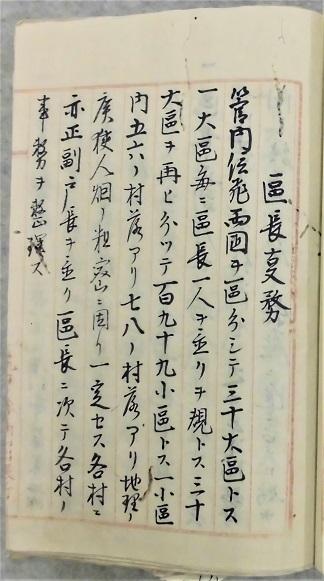 區長事務
管内信飛両国ヲ區分シテ三十大區トス
一大區毎ニ區長一人ヲ並リヲ規トス三十
大區ヲ再ヒ分ツテ百九十九小區トス一小區
内五六ノ村落アリ七八ノ村落アリ地理ノ
廣狭人烟ノ粗密ニ因リ一定セス各村ニ
亦正副戸長ヲ並リ區長ニ次テ各村ノ
事務ヲ整理ス